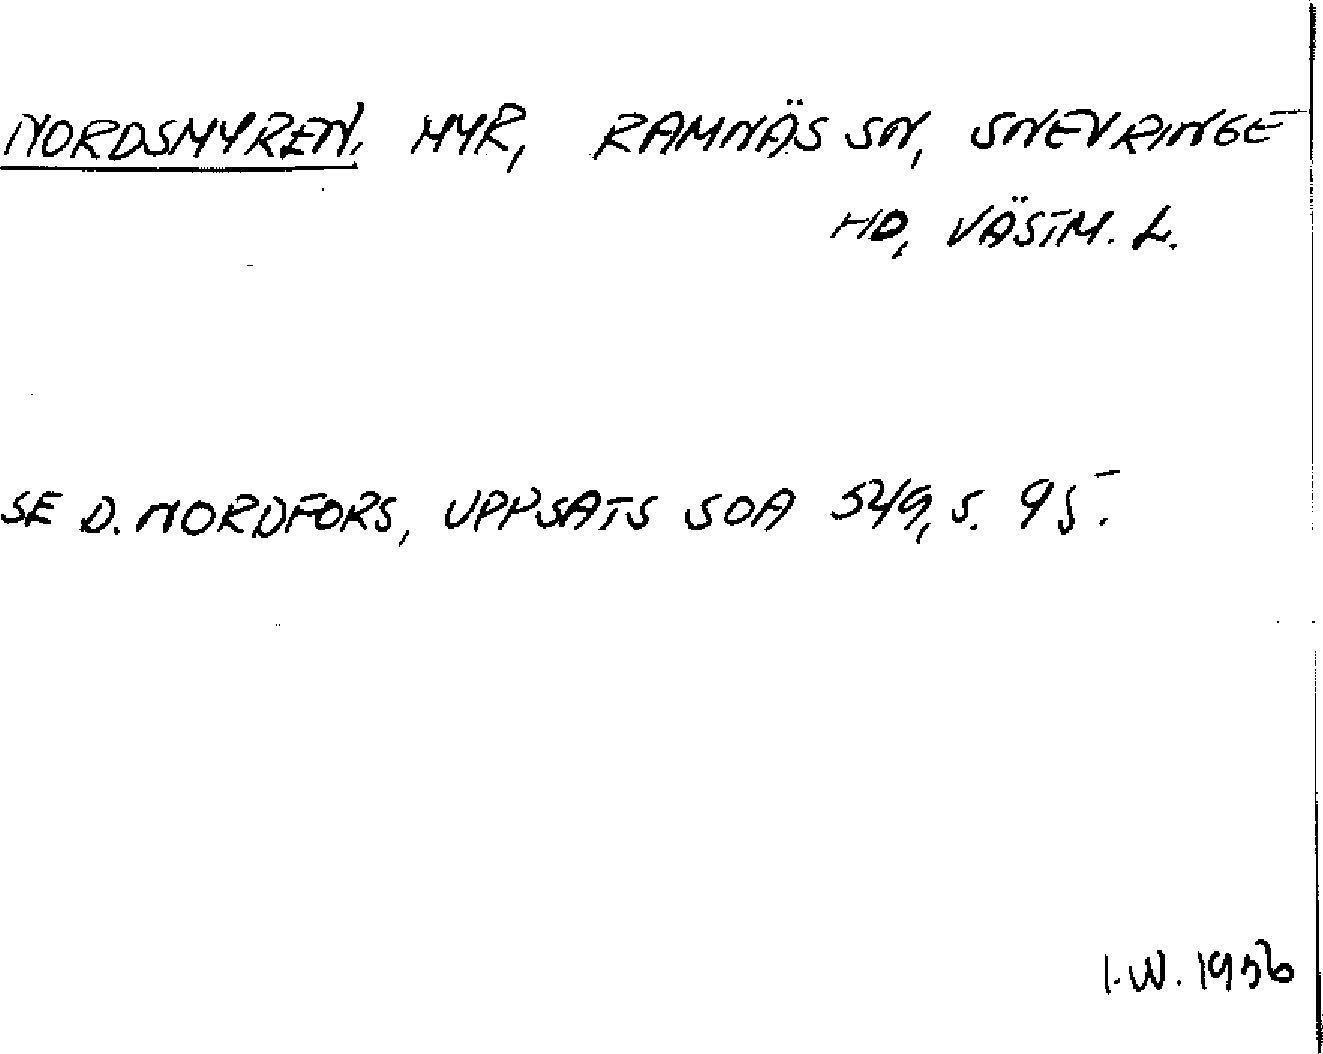 NORDSMYREN, MYR, RAMNÄS SN, SNEVRINGE
HD, VÄSTM. L.
SE D. NORDFORS, UPPSATS SOA 549, S. 95.
I.W. 1956